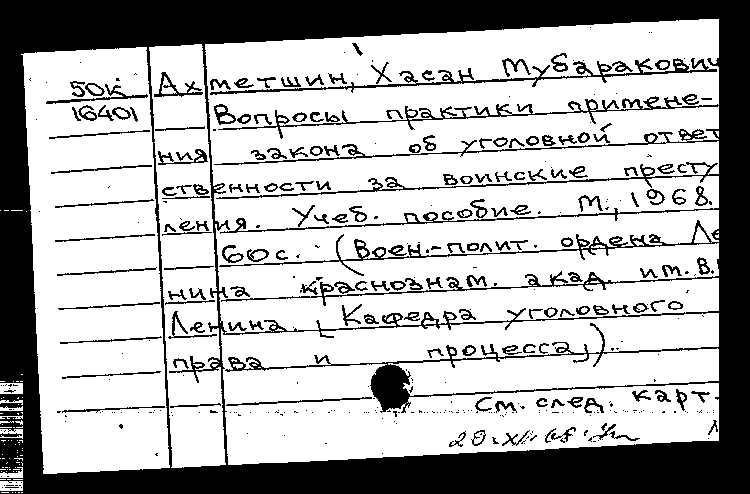 50К Ахметшин, Хасан Мубаракович
16401 Вопросы практики примене-
ния закона об уголовной ответ
ственности за воинские престу
ления. Учеб. пособие. М., 1968.
60 с. (Воен.-полит. ордена Ле
нина краснознам. акад. им. В.
Ленина. [Кафедра уголовного
права и процесса]).
См. след. карт.